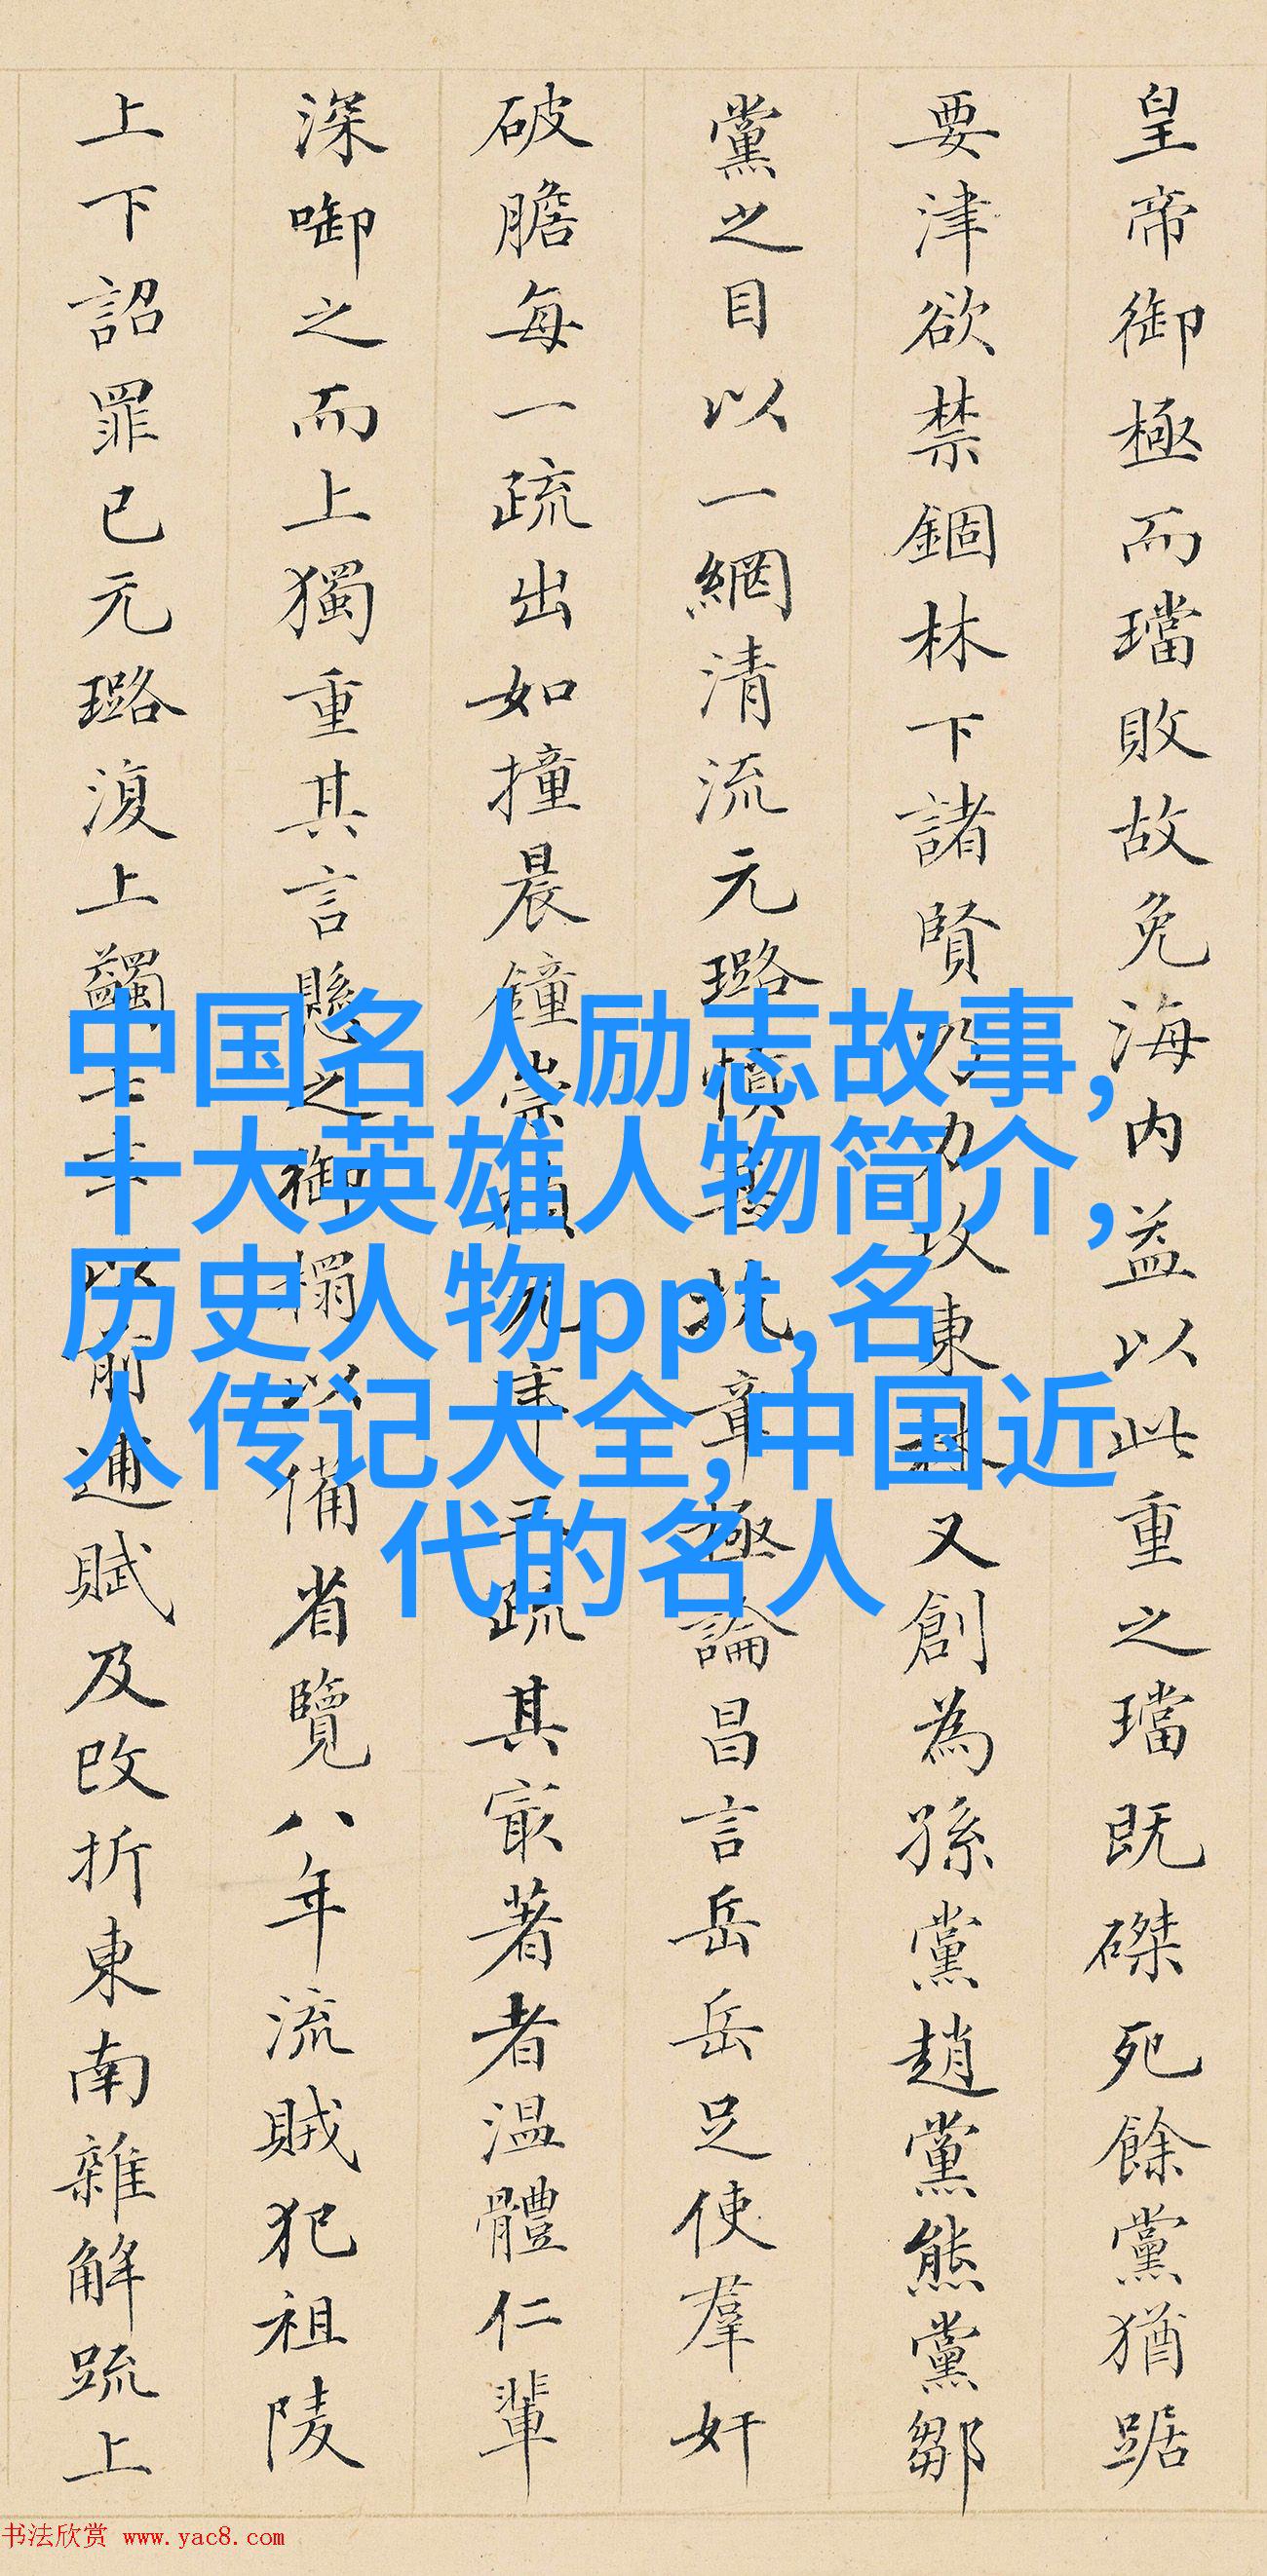 皇帝御極而璫敗故免海内益以此重之璫既磔死餘黨猶踞
要津欲禁錮林下諸賢乃力攻東林又創為孫黨趙黨熊黨鄒
黨之目以一網清流元璐憤抗章極論昌言岳岳足使羣奸
破膽每一疏出如撞晨鐘崇疏其最著者溫體仁輩
深啣之而上獨重其言懸之御榻以備省覽八年流賊犯祖陵
上下詔罪已元璐復上蠲七年以前逋賦及改折東南雜解疏上
中国名人励志故事,
十大英雄人物简介,
历史人物ppt,名
人传记大全,中国近
代的名人
书法欣赏 www.yac8.com